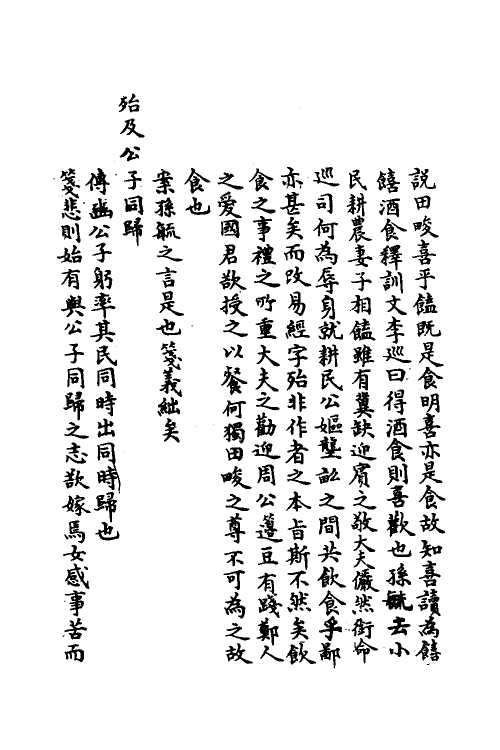 説田畯喜乎饁既是食明喜亦是食故知喜讀為饎
饎酒食釋訓文李巡曰得酒食則喜歡也孫毓云小
民耕農妻子相饁雖有冀缺迎賓之敬大夫儼然銜命
巡司何為辱身就耕民公嫗壟畝之間共飲食乎鄙
亦甚矣而改易經字殆非作者之本旨斯不然矣飲
食之事禮之所重大夫之勸迎周公籩豆有踐鄭人
之愛國君欲授之以餐何獨田畯之尊不可為之故
食也
案孫毓之言是也箋義絀矣
殆及公子同歸
傳豳公子躬率其民同時出同時歸也
箋悲則始有與公子同歸之志欲嫁焉女感事苦而